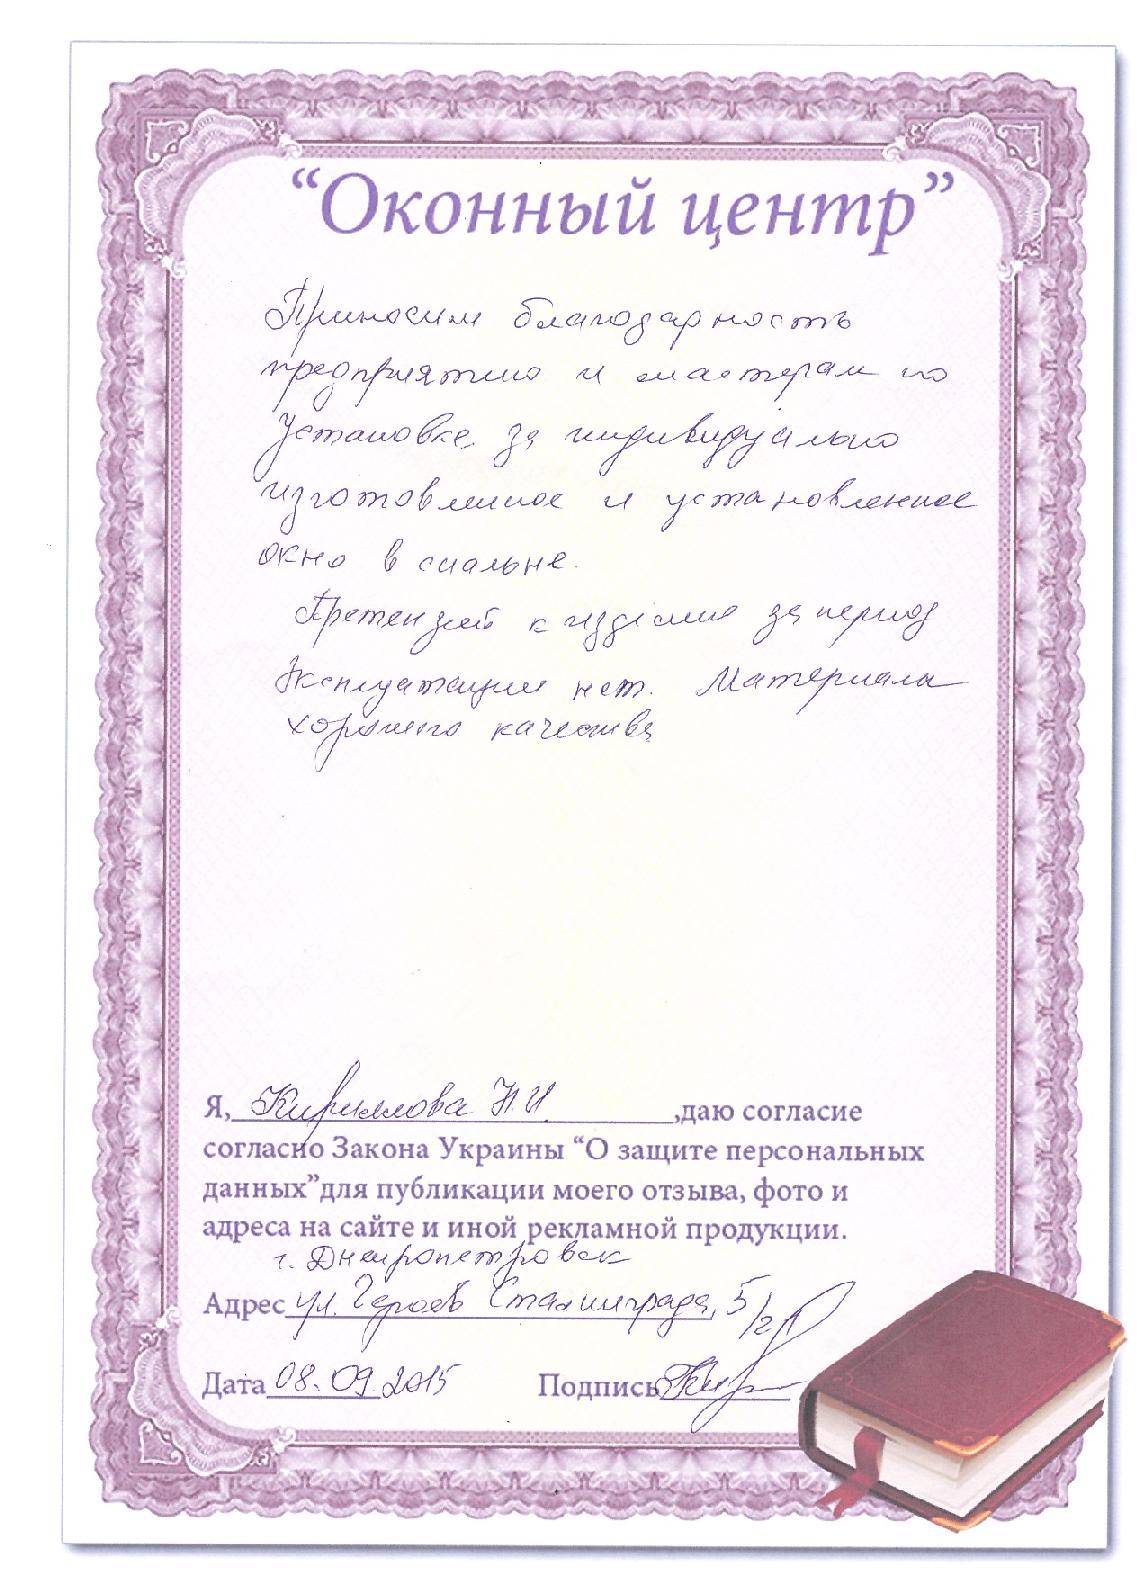 “Оконный центр”
Приносим благодарность
предприятию и мастерам по
установке за индивидуально
изготовленное и установленное
окно в спальне.
Претензий к изделию за период
эксплуатации нет. Материалы
хорошего качества
Я, Кириллова Н.И. ,даю согласие
согласно Закона Украины “О защите персональных
данных”для публикации моего отзыва, фото и
адреса на сайте и иной рекламной продукции.
г. Днепропетровск
Адрес ул. Героев Сталинграда, 5/
Дата 08.09.2015 Подпись